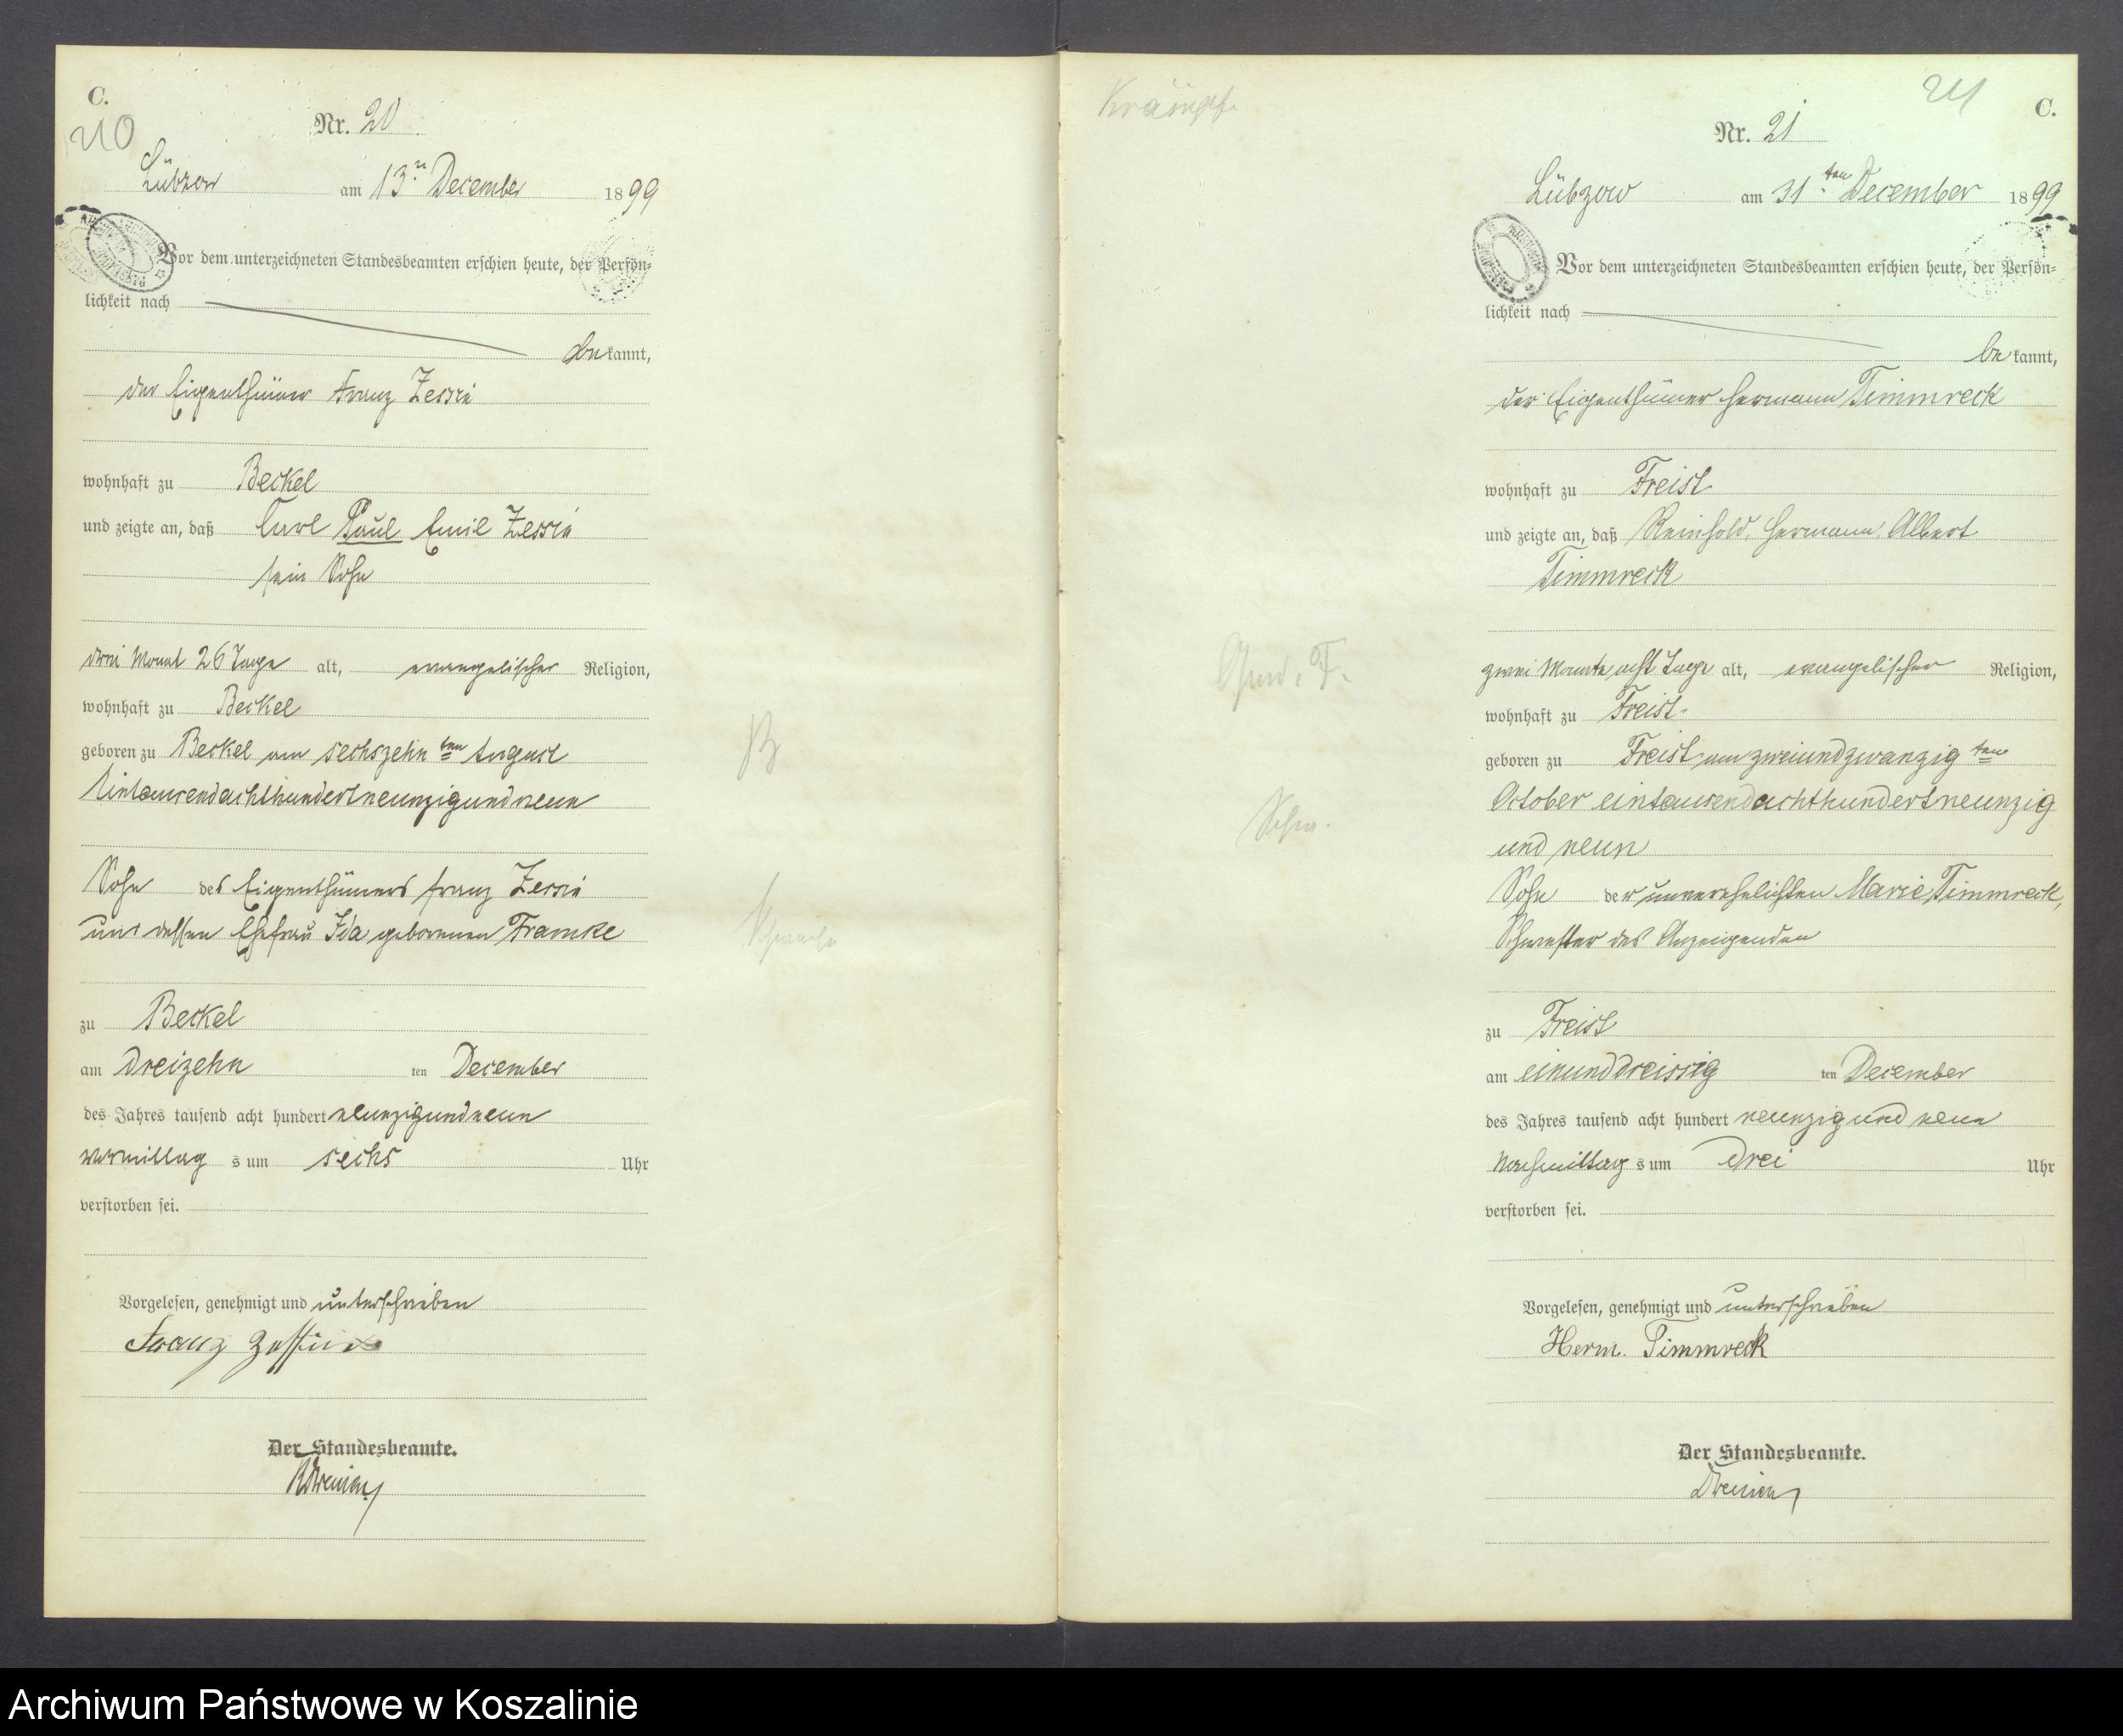 C.
210
Nr. 20
Lübzow am 13.n December 1899
Vor dem unterzeichneten Standesbeamten erschien heute, der Persön-
lichkeit nach
bekannt,
der Eigenthümer Franz
wohnhaft zu Beckel
und zeigte an, daß Carl Paul Emil
sein Sohn
drei Monat 26 Tage alt, evangelischer Religion,
wohnhaft zu Beckel
geboren zu Beckel am sechszehn ten August
Eintausendachthundertneunzigundneun
Sohn des Eigenthümers Franz
und dessen Ehefrau Ida geborenen Framke
zu Beckel
am dreizehn ten December
des Jahres tausend acht hundert neunzigundneun
Vormittags um sechs Uhr
verstorben sei.
Vorgelesen, genehmigt und unterschrieben
Franz
Der Standesbeamte.
Krämpfe
211
C.
Nr. 21
Lübzow am 31.ten December 1899
Vor dem unterzeichneten Standesbeamten erschien heute, der Persön-
lichkeit nach
bekannt,
der Eigenthümer Hermann Timmreck
wohnhaft zu Freist
und zeigte an, daß Reinhold, Hermann Albert
Timmreck
zwei Monate acht Tage alt, evangelischer Religion,
wohnhaft zu Freist
geboren zu Freist am zweiundzwanzig ten
October eintausendachthundertneunzig
und neun
Sohn der unverehelichten Marie Timmreck,
Schwester des Anzeigenden
zu Freist
am einunddreissig ten December
des Jahres tausend acht hundert neunzig und neun
Nachmittags um drei Uhr
verstorben sei.
Vorgelesen, genehmigt und unterschrieben
Herm. Timmreck
Der Standesbeamte.
Archiwum Państwowe w Koszalinie